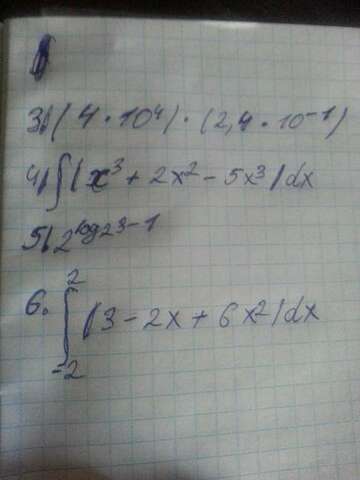 3) (4 · 10⁴) · (2,4 · 10⁻¹)
4) ∫(x³ + 2x² - 5x³)dx
5) 2^log₂3-1
6. ∫₋₂² (3 - 2x + 6x²)dx